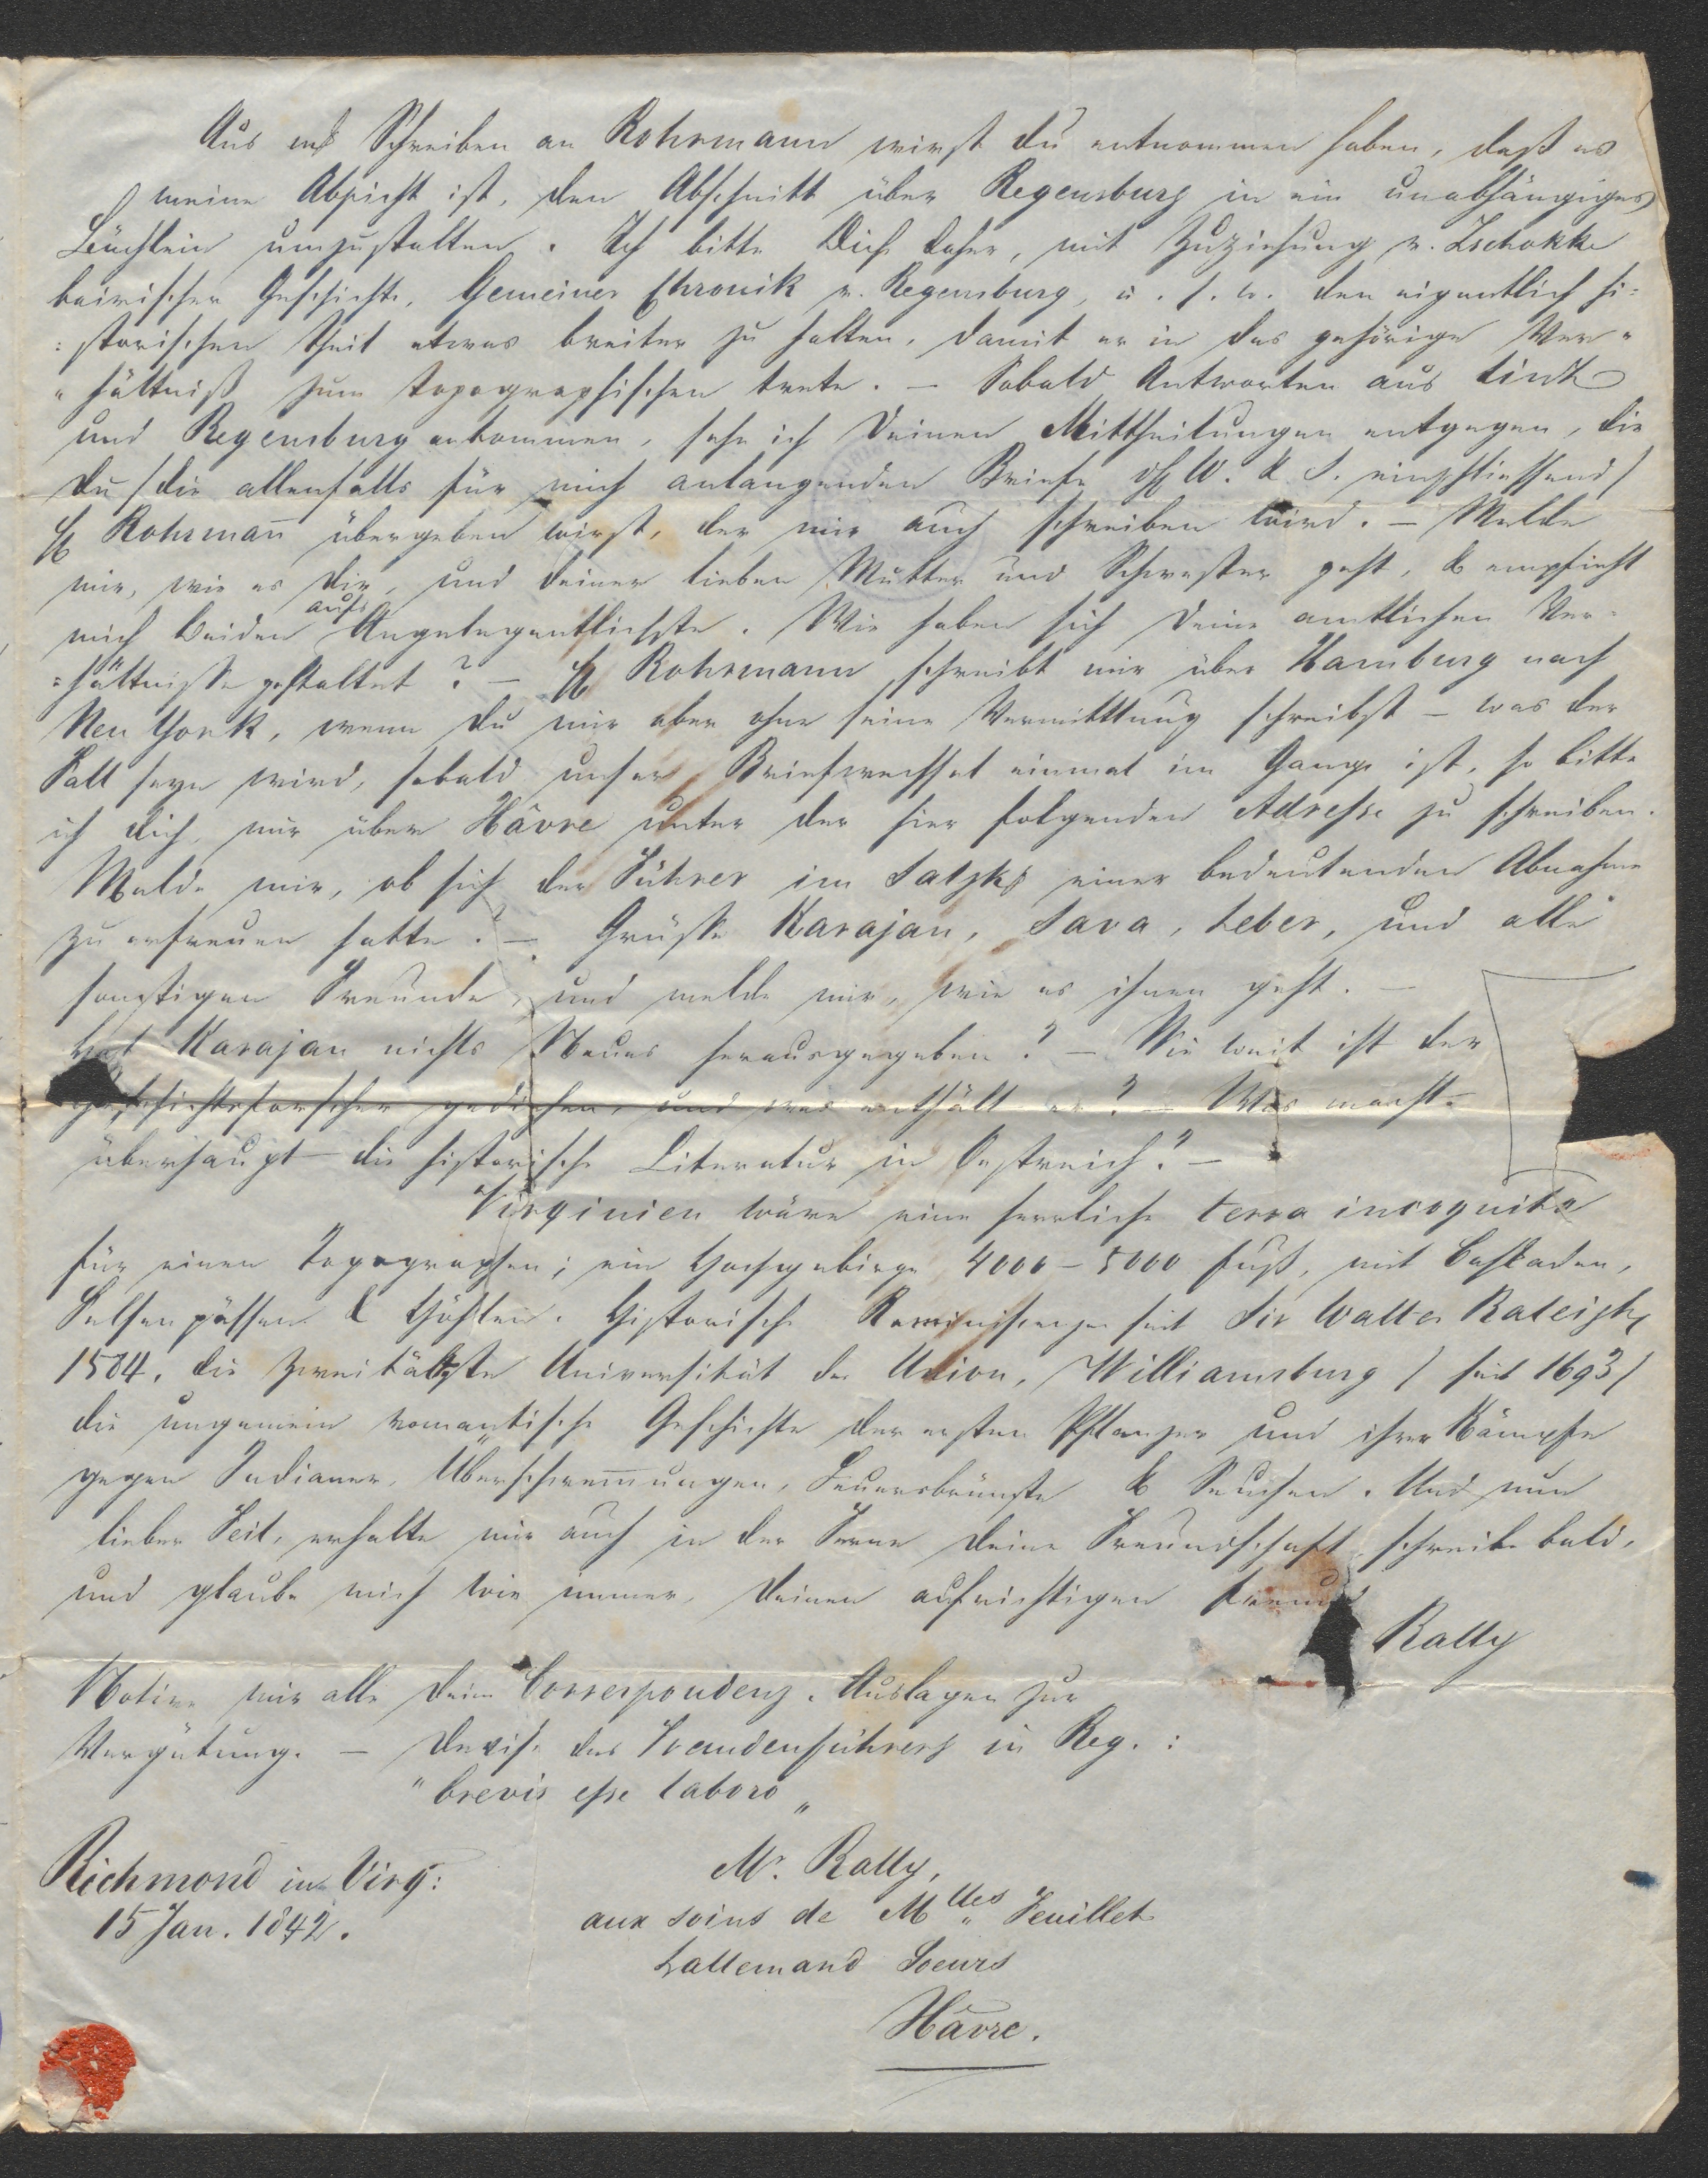 Aus mʳ Schreiben an Rohrmann wirst du entnommen haben, daß es
meine Absicht ist, den Abschnitt über Regensburg in ein unabhängiges
Büchlein umzustalten. Ich bitte Dich daher, mit Zuziehung v. Zschokke
bairischer Geschichte, Gemeiner Chronik v. Regensburg, u. s. w. den eigentlich hi=
=storischen Theil etwas breiter zu halten, damit er in das gehörige Ver=
=hältniß zum topographischen trete. – Sobald Antworten aus Linz
und Regensburg ankommen, sehe ich Deinen Mittheilungen entgegen, die
du /die allenfalls für mich anlangenden Briefe W. & S. einschliessend/
H Rohrman̅ übergeben wirst, der mir auch schreiben wird. – Melde
mir, wie es dir, und deiner lieben Mutter und Schwester geht, & empfiehl
mich beiden aufs Angelegentlichste. Wie haben sich deine amtlichen Ver=
=hältnisse gestaltet? – H Rohrmann schreibt mir über Hamburg nach
New York, wenn du mir aber ohne seine Vermittlung schreibst – was der
Fall seyn wird, sobald unser Briefwechsel einmal im Gange ist, so bitte
ich dich, mir über Hâvre unter der hier folgenden Adresse zu schreiben.
Melde mir, ob sich der Führer im Salzkg einer bedeutenden Abnahme
zu erfreuen hatte? – Grüße Karajan, Sava, Leber, und alle
sonstigen Freunde, und melde mir, wie es ihnen geht. –
Hat Karajan nichts Neues herausgegeben? – Wie weit ist der
Geschichtsforscher gediehen, und was enthält er? – Was macht
überhaupt die historische Literatur in Oestreich? –
Virginien wäre eine herrliche terra incognita
für einen Topographen; ein Hochgebirge 4000 – 5000 Fuß, mit Caskaden,
Felsenpässen & Höhlen. Historische Reminiscenzen seit Sir Walter Raleigh,
1584, die zweitälteste Universität der Union, Williamsburg / seit 1693/
die ungemein romantische Geschichte der ersten Pflanzer und ihrer Kämpfe
gegen Indianer, Überschwem̅ungen, Feuersbrünste & Seuchen. Und nun
lieber Feil, erhalte mir auch in der Ferne deine Freundschaft, schreibe bald,
und glaube mich wie immer, deinen aufrichtigen Freund
Rally
Notire mir alle deine Correspondenz-Auslagen zur
Vergütung. – Devise des Fremdenführers in Reg.:
"brevis esse laboro„
Richmond in Virg:
15 Jan. 1842.
Mʳ. Rally,
aux soins de Mˡˡᵉˢ Feuillet
Lallemand Soeurs
Hâvre.